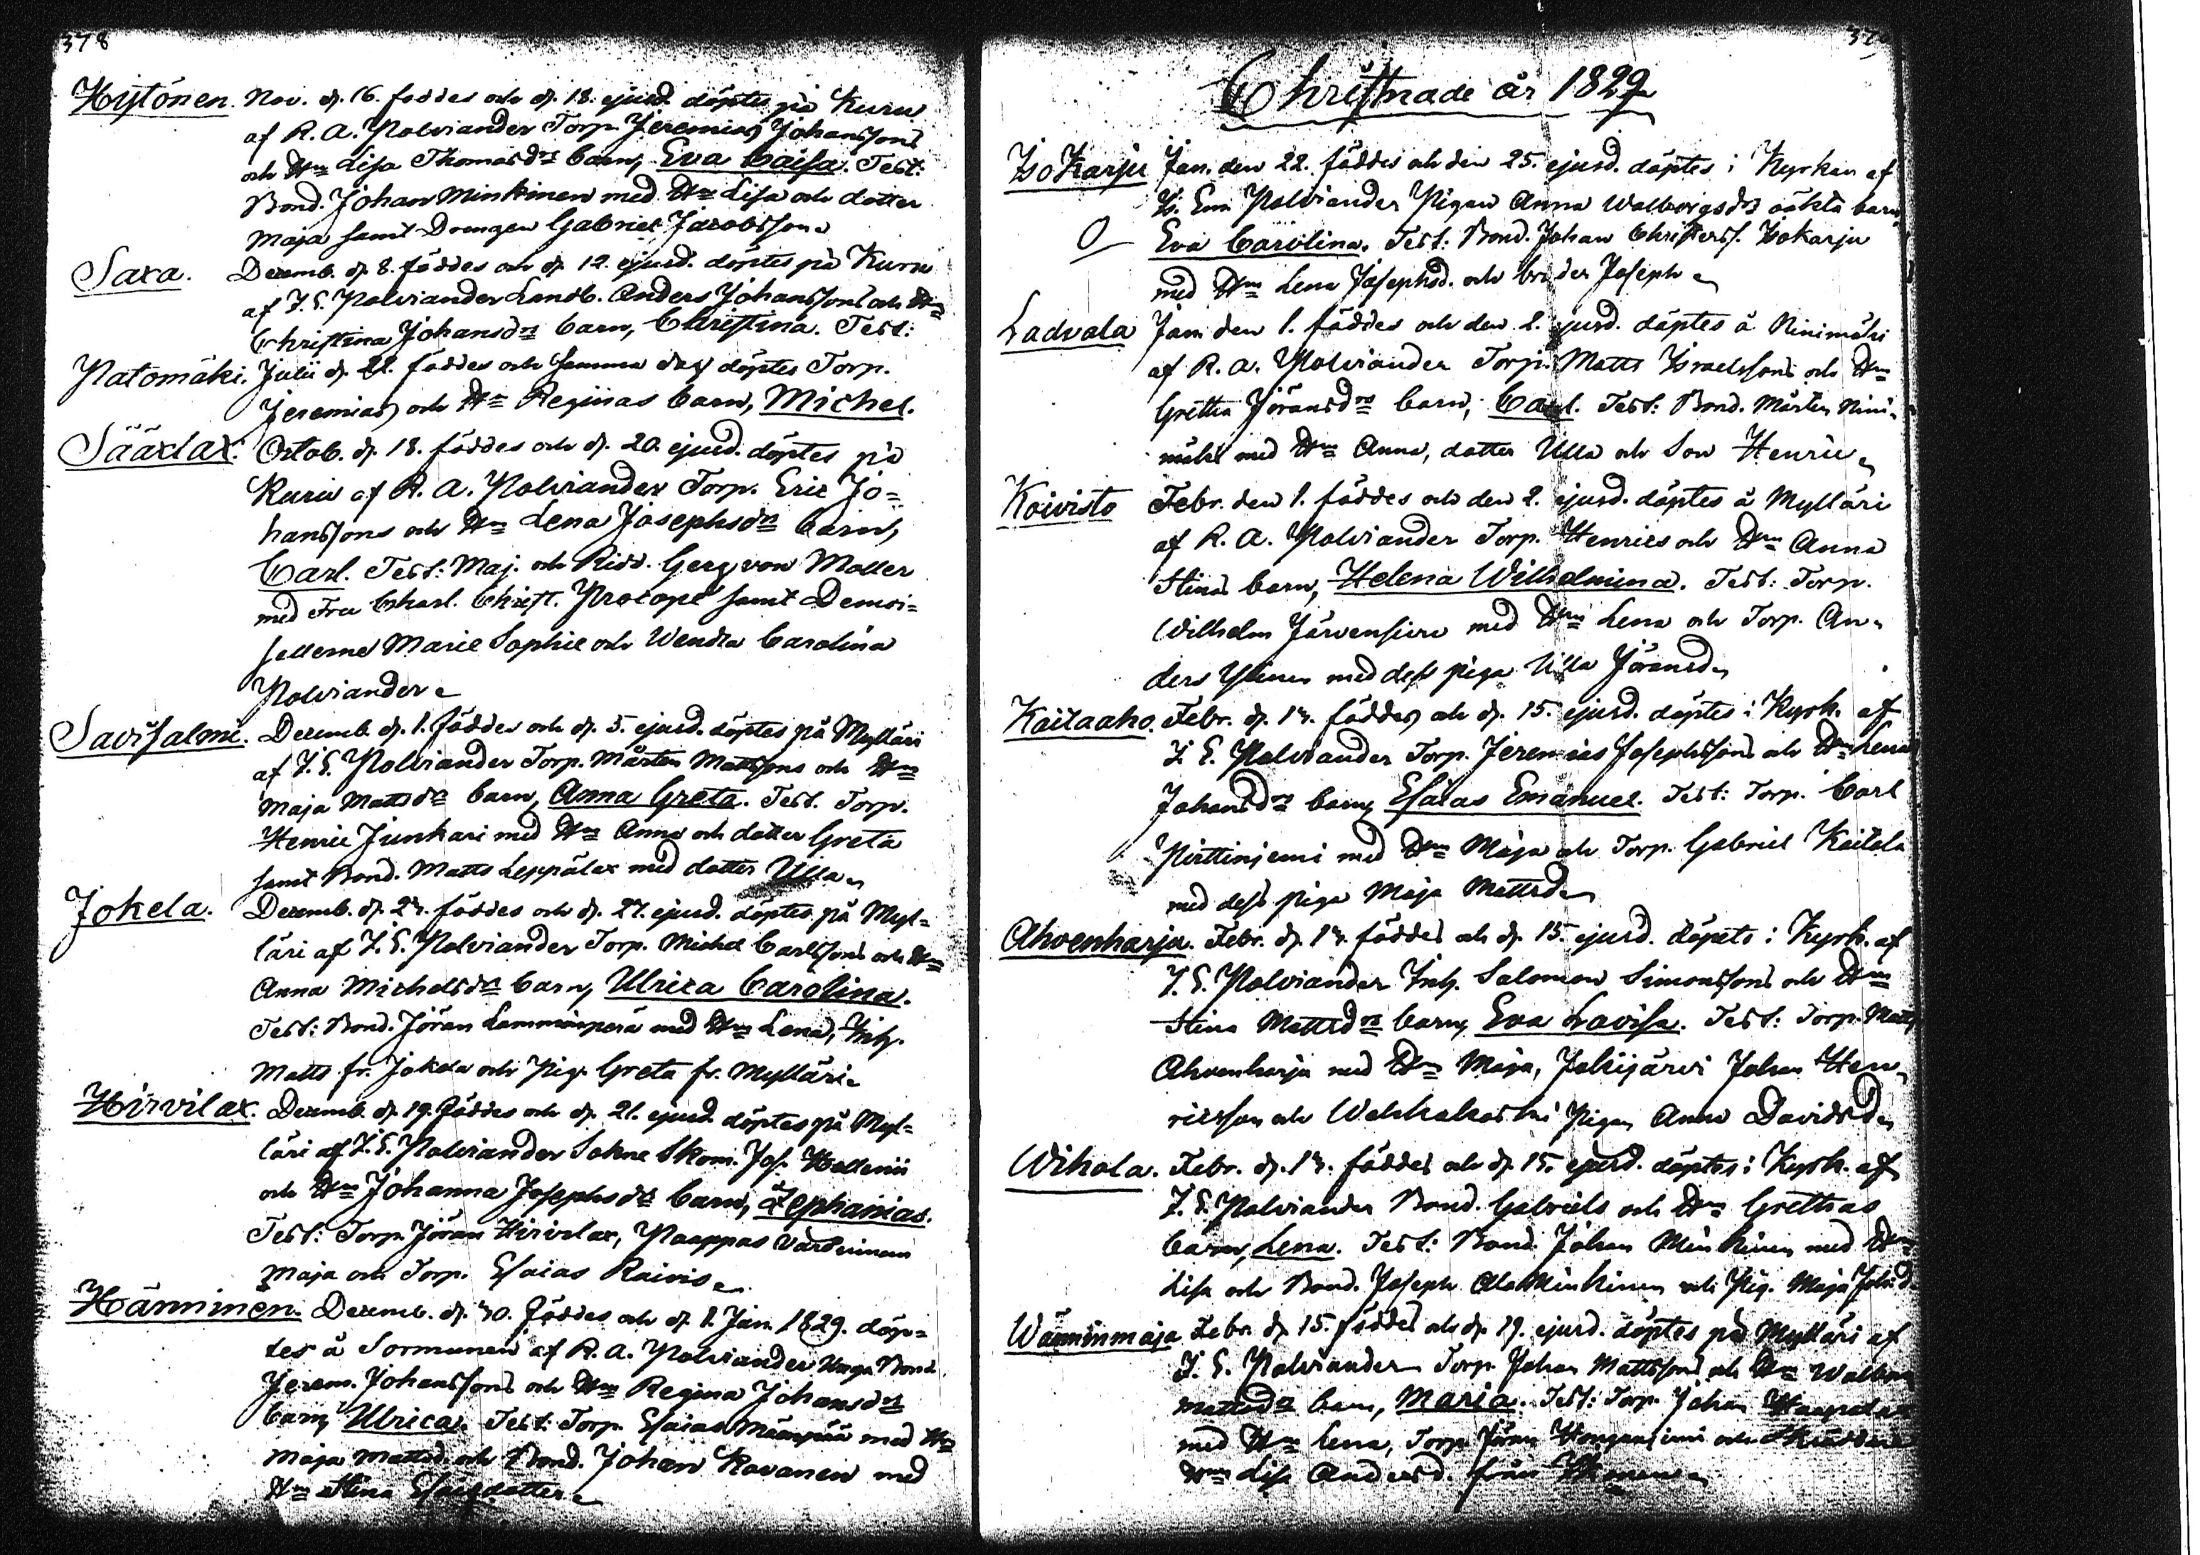 378
Hytönen. Nov. d. 16. föddes och d. 18. ejusd. döptes på Kuru
af R. A. Polviander Torp. Jeremias Johanssons
och Hu Lisa Thomasdrs barn, Eva Caisa. Test:
Bond. Johan Minkinen med Hu Lisa och dotter
Maja samt Drengen Gabriel Jacobsson
Saxa. Decemb. d. 8. föddes och d. 12. ejusd. döptes på Kuru
af J. E. Polviander Landb. Anders Johanssons och Hu
Christina Johansdrs barn, Christina. Test:
Patomäki. Julii d. 22. föddes och samma dag döptes Torp.
Jeremias och Hu Reginas barn, Michel.
Sääxlax. Octob. d. 18. föddes och d. 20. ejusd. döptes på
Kuru af R. A. Polviander Torp. Eric Jo=
hanssons och Hu Lena Josephsdrs barn,
Carl. Test: Maj. och Ridd. Georg von Moller
med Fru Charl. Christ. Procopé samt Demoi=
sellerne Marie Sophie och Wendla Carolina
Polviander
Savisalmi. Decemb. d. 1. föddes och d. 5. ejusd. döptes på Mylläri
af J. E. Polviander Torp. Mårten Mattssons och Hu
Maja Mattsdrs barn, Anna Greta. Test. Torp.
Henric Junkari med Hu Anna och dotter Greta
samt Bond. Matts Leppälax med dotter Ulla
Jokela. Decemb. d. 24. föddes och d. 27. ejusd. döptes på Myl=
läri af J. E. Polviander Torp. Michel Carlssons och Hu
Anna Michelsdrs barn, Ulrica Carolina.
Test: Bond. Jöran Lamminperä med Hu Lena, Inh.
Matts fr. Jokela och Pig. Greta fr. Mylläri
Hirvilax. Decemb. d. 19. föddes och d. 21. ejusd. döptes på Myl=
läri af J. E. Polviander Sokne Skom. Jos. Hallenii
och Hu Johanna Josephsdrs barn, Zephanias.
Test: Torp. Jöran Hirvilax, Paappas Värdinnan
Maja och Torp. Esaias Raivis
Hänninen. Decemb. d. 30. föddes och d. 1. Jan. 1829. döp=
tes å Sormunen af R. A. Polviander Unga Bond.
Jerem. Johanssons och Hu Regina Johansdrs
barn, Ulrica. Test: Torp. Esaias Määnpää med Hu
Maja Mattsd. och Bond. Johan Kavanen med
Hu Stina Esaiædotter
Christnade år 1829
Iso Karju Jan. den 22. föddes och den 25. ejusd. döptes i Kyrkan af
Is. Em. Polviander Pigan Anna Walborgsdrs oäkta barn
Eva Carolina. Test: Bond. Johan Christerss. Isokarju
med Hu Lena Josephsd. och broder Joseph
Ladvala Jan. den 1. föddes och den 2. ejusd. döptes å Ninimäki
af R. A. Polviander Torp. Matts Israelssons och Hu
Gretha Jöransdrs barn, Carl. Test: Bond. Mårten Nini=
mäki med Hu Anna, dotter Ulla och Son Henric
Koivisto Febr. den 1. föddes och den 2. ejusd. döptes å Mylläri
af R. A. Polviander Torp. Henrics och Hu Anna
Stinas barn, Helena Wilhelmina. Test: Torp.
Wilhelm Järvensivu med Hu Lena och Torp. An=
ders med dess piga Ulla Jöransd.
Kaitaaho. Febr. d. 14. föddes och d. 15. ejusd. döptes i Kyrk. af
J. E. Polviander Torp. Jeremias Josephssons och Hu Lena
Johansdrs barn, Esaias Emanuel. Test: Torp. Carl
Pirttinjemi med Hu Maja och Torp. Gabriel Kaitala
med dess piga Maja Mattsd.
Ahvenharju. Febr. d. 14. föddes och d. 15. ejusd. döptes i Kyrk. af
J. E. Polviander Inh. Salomon Simonssons och Hu
Stina Mattsdrs barn, Eva Lovisa. Test: Torp. Matts
Ahvenharju med Hu Maja, Jalkijärvi Johan Hen=
ricsson och Pigan Anna Davidsd.
Wihola. Febr. d. 14. föddes och d. 15. ejusd. döptes i Kyrk. af
J. E. Polviander Bond. Gabriels och Hu Grethas
barn, Lena. Test: Bond. Johan Minkinen med Hu
Lisa och Bond. Joseph Ala Minkinen och Pig. Maja Johsd.
Wänninmaja Febr. d. 15. föddes och d. 19. ejusd. döptes på Mylläri af
J. E. Polviander Torp. Johan Mattssons och Hu Walbor
Mattsdrs barn, Maria. Test: Torp. Johan
med Hu Lena, Torp. Jöran och Skräddare
Hu Lisa Andersd. från